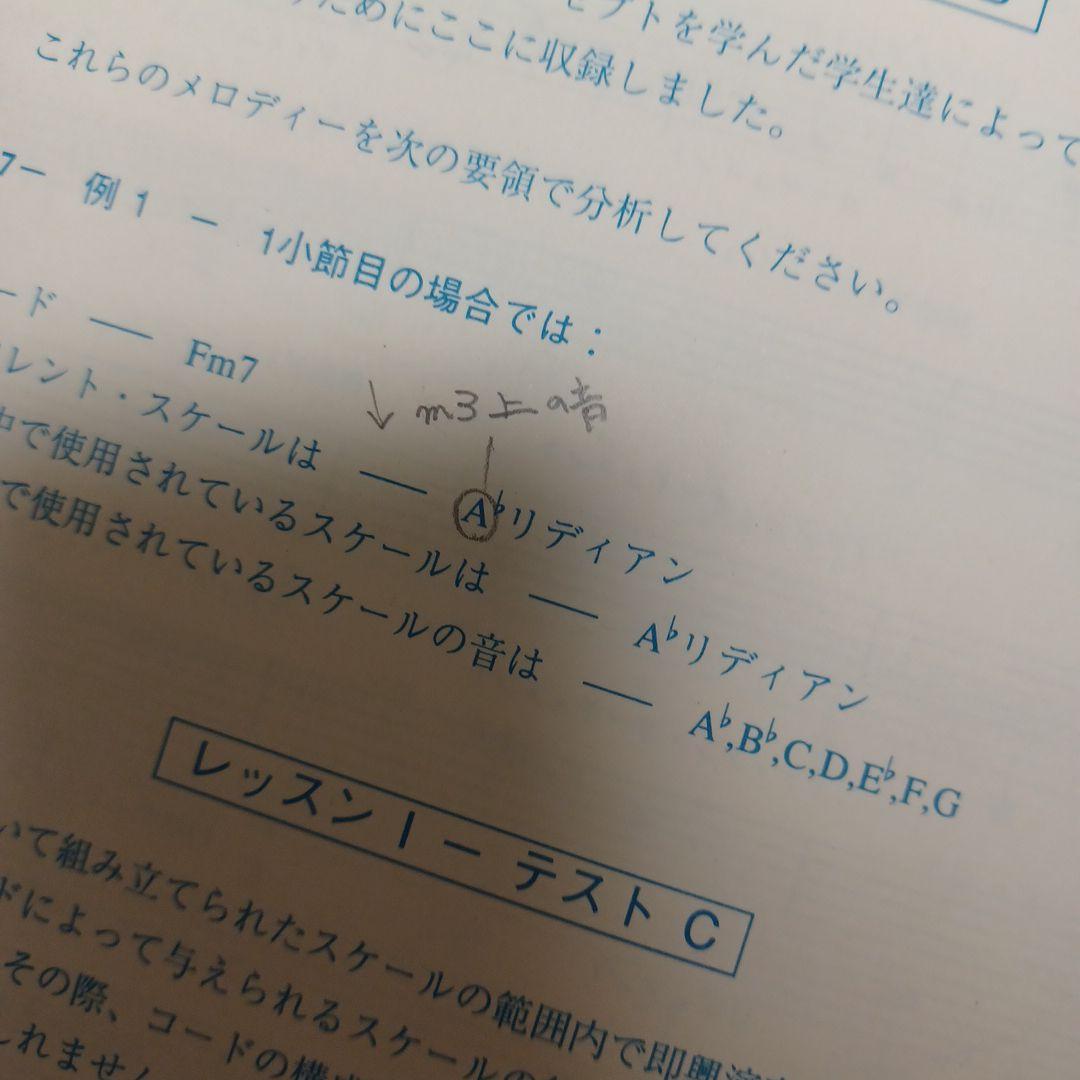 プトを学んだ学生達によって
ためにここに収録しました。
これらのメロディーを次の要領で分析してください。
7− 例 1 − 1小節目の場合では：
ード ── Fm7
↓ m3上の音
レント・スケールは ── A♭リディアン
中で使用されているスケールは ── A♭リディアン
で使用されているスケールの音は ── A♭,B♭,C,D,E♭,F,G
レッスン I − テスト C
いて組み立てられたスケールの範囲内で即興演
ドによって与えられるスケールの
その際、コードの構成
しれません